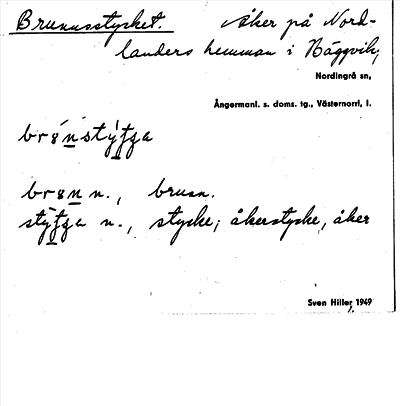 Brunnsstycket. Åker på Nord-
landers hemman i Häggvik,
Nordingrå sn,
Ångermanl. s. doms. tg., Västernorrl. l.
brunn.
n., stycke; åkerstycke, åker
Sven Hiller, 1949